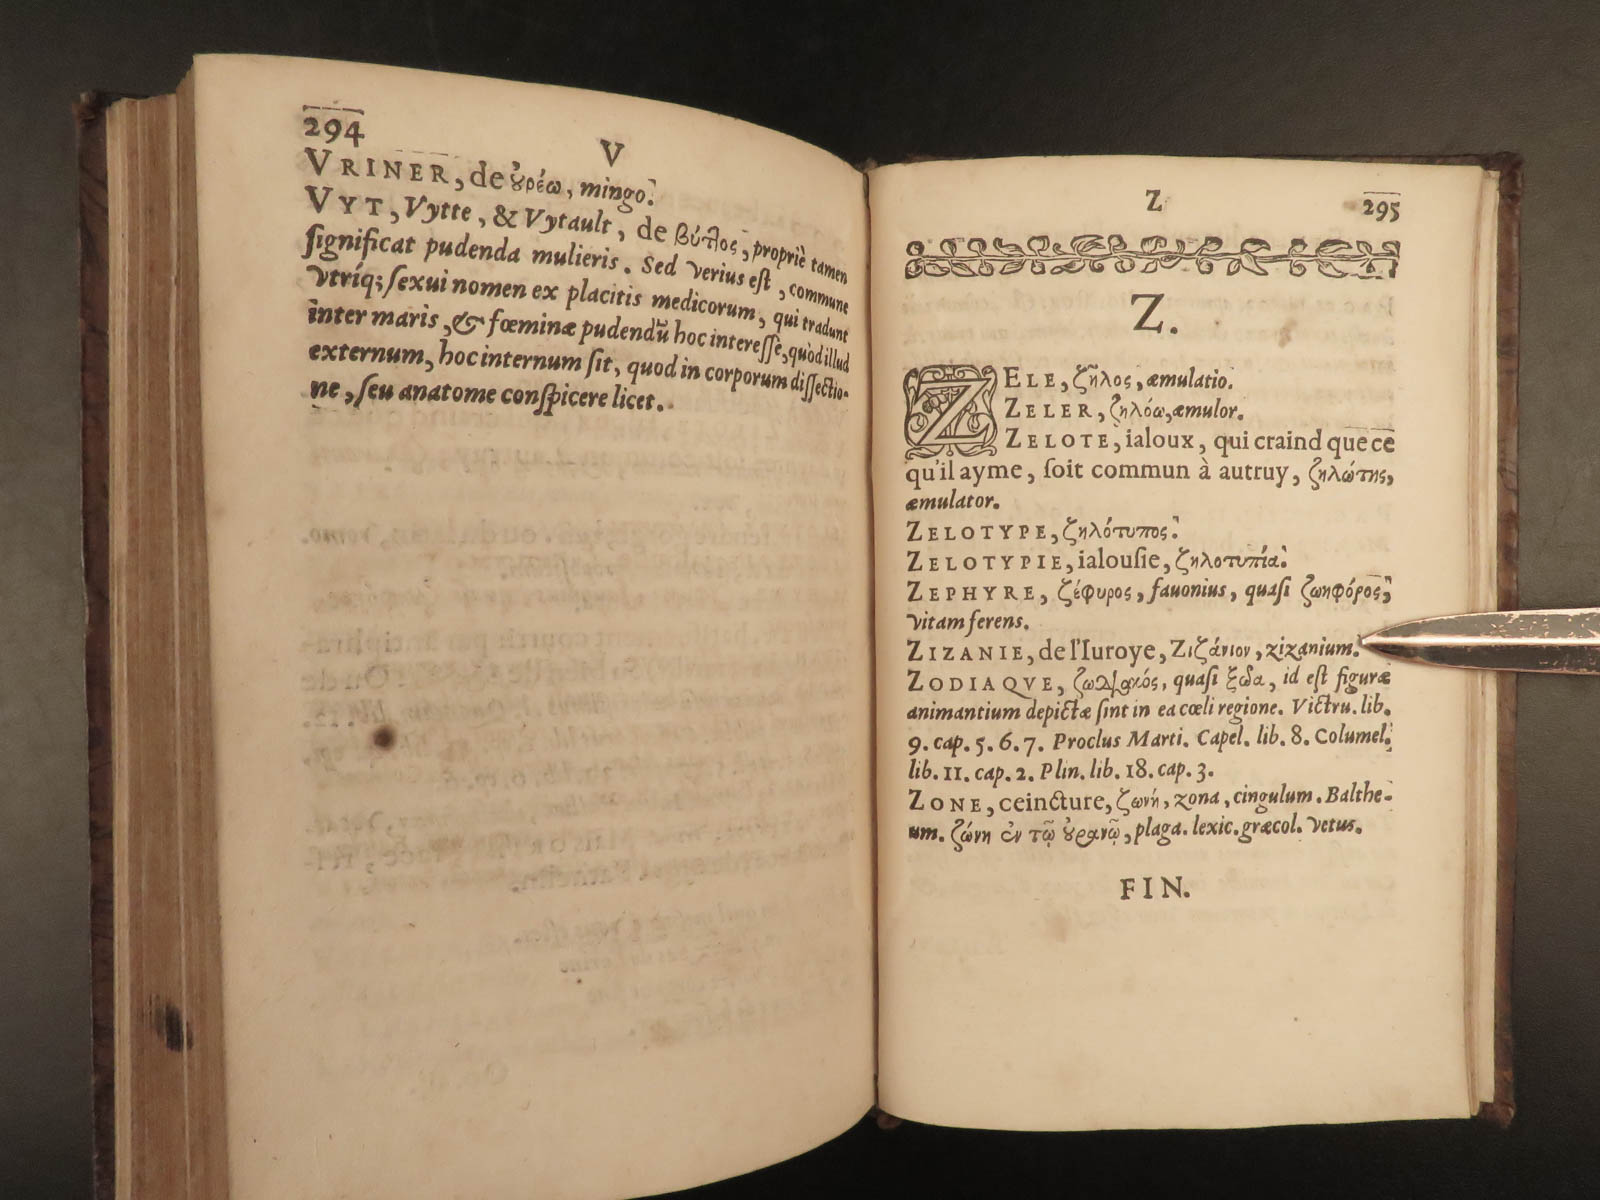 294
V
VRINER, de ȣ̓ρέω, mingo.
VYT, Vytte, & Vytault, de βύτλος, propriè tamen
ſignificat pudenda mulieris. Sed verius eſt, commune
vtríq; ſexui nomen ex placitis medicorum, qui tradunt
inter maris, & fœminæ pudendũ hoc intereſſe, quòd illud
externum, hoc internum ſit, quod in corporum diſſectio-
ne, ſeu anatome conſpicere licet.
Z
295
Z.
ZELE, ζῆλος, æmulatio.
ZELER, ζηλόω, æmulor.
ZELOTE, ialoux, qui craind que ce
qu'il ayme, ſoit commun à autruy, ζηλώτης,
æmulator.
ZELOTYPE, ζηλότυπος.
ZELOTYPIE, ialouſie, ζηλοτυπία.
ZEPHYRE, ζέφυρος, fauonius, quaſi ζωηφόρος,
vitam ferens.
ZIZANIE, de l'Iuroye, Ζιζάνιον, zizanium.
ZODIAQVE, ζωδιακός, quaſi ξῶδα, id eſt figuræ
animantium depictæ ſint in ea cœli regione. Victru. lib.
9. cap. 5. 6. 7. Proclus Marti. Capel. lib. 8. Columel.
lib. 11. cap. 2. Plin. lib. 18. cap. 3.
ZONE, ceincture, ζωνή, zona, cingulum. Balthe-
um. ζώνη ἐν τῷ ȣ̓ρανῷ, plaga. lexic. græcol. vetus.
FIN.